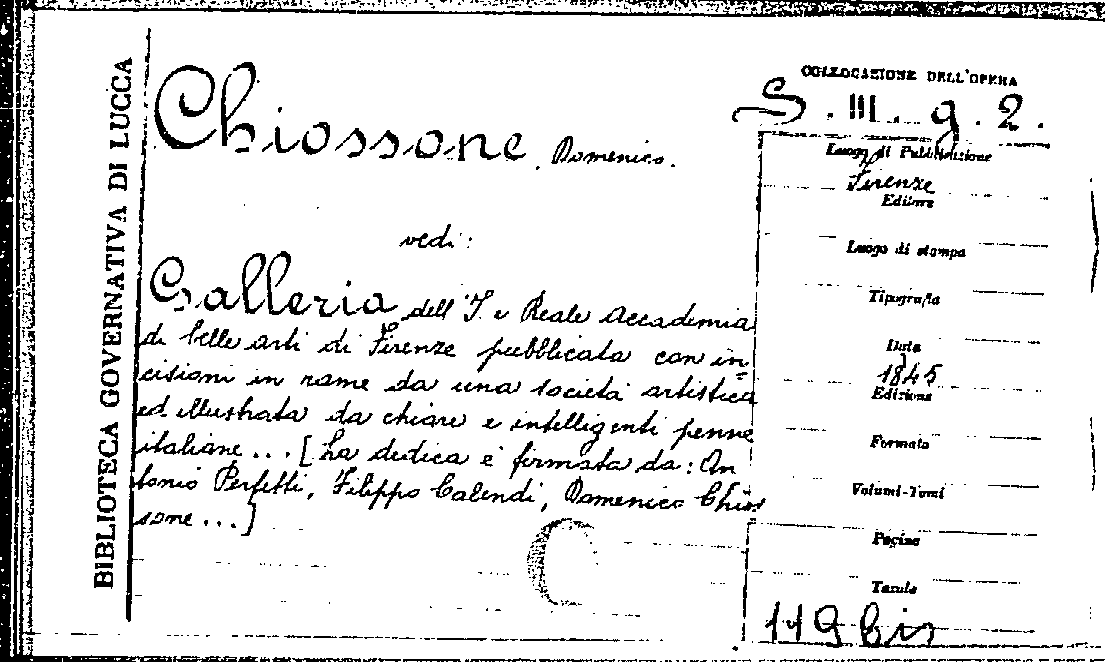 BIBLIOTECA GOVERNATIVA DI LUCCA
Chiossone, Domenico.
vedi:
Galleria dell'I. e Reale Accademia
di belle arti di Firenze pubblicata con in=
cisioni in rame da una società artistica
ed illustrata da chiare e intelligenti penne
italiane... [La dedica è firmata da: An
tonio Perfetti, Filippo Calendi, Domenico Chios
sone...]
COLLOCAZIONE DELL'OPERA
S. III. g. 2.
Luogo di Pubblicazione
Firenze
Editore
Luogo di stampa
Tipografia
Data
1845
Edizione
Formato
Volumi-Tomi
Pagine
Tavole
119 bis